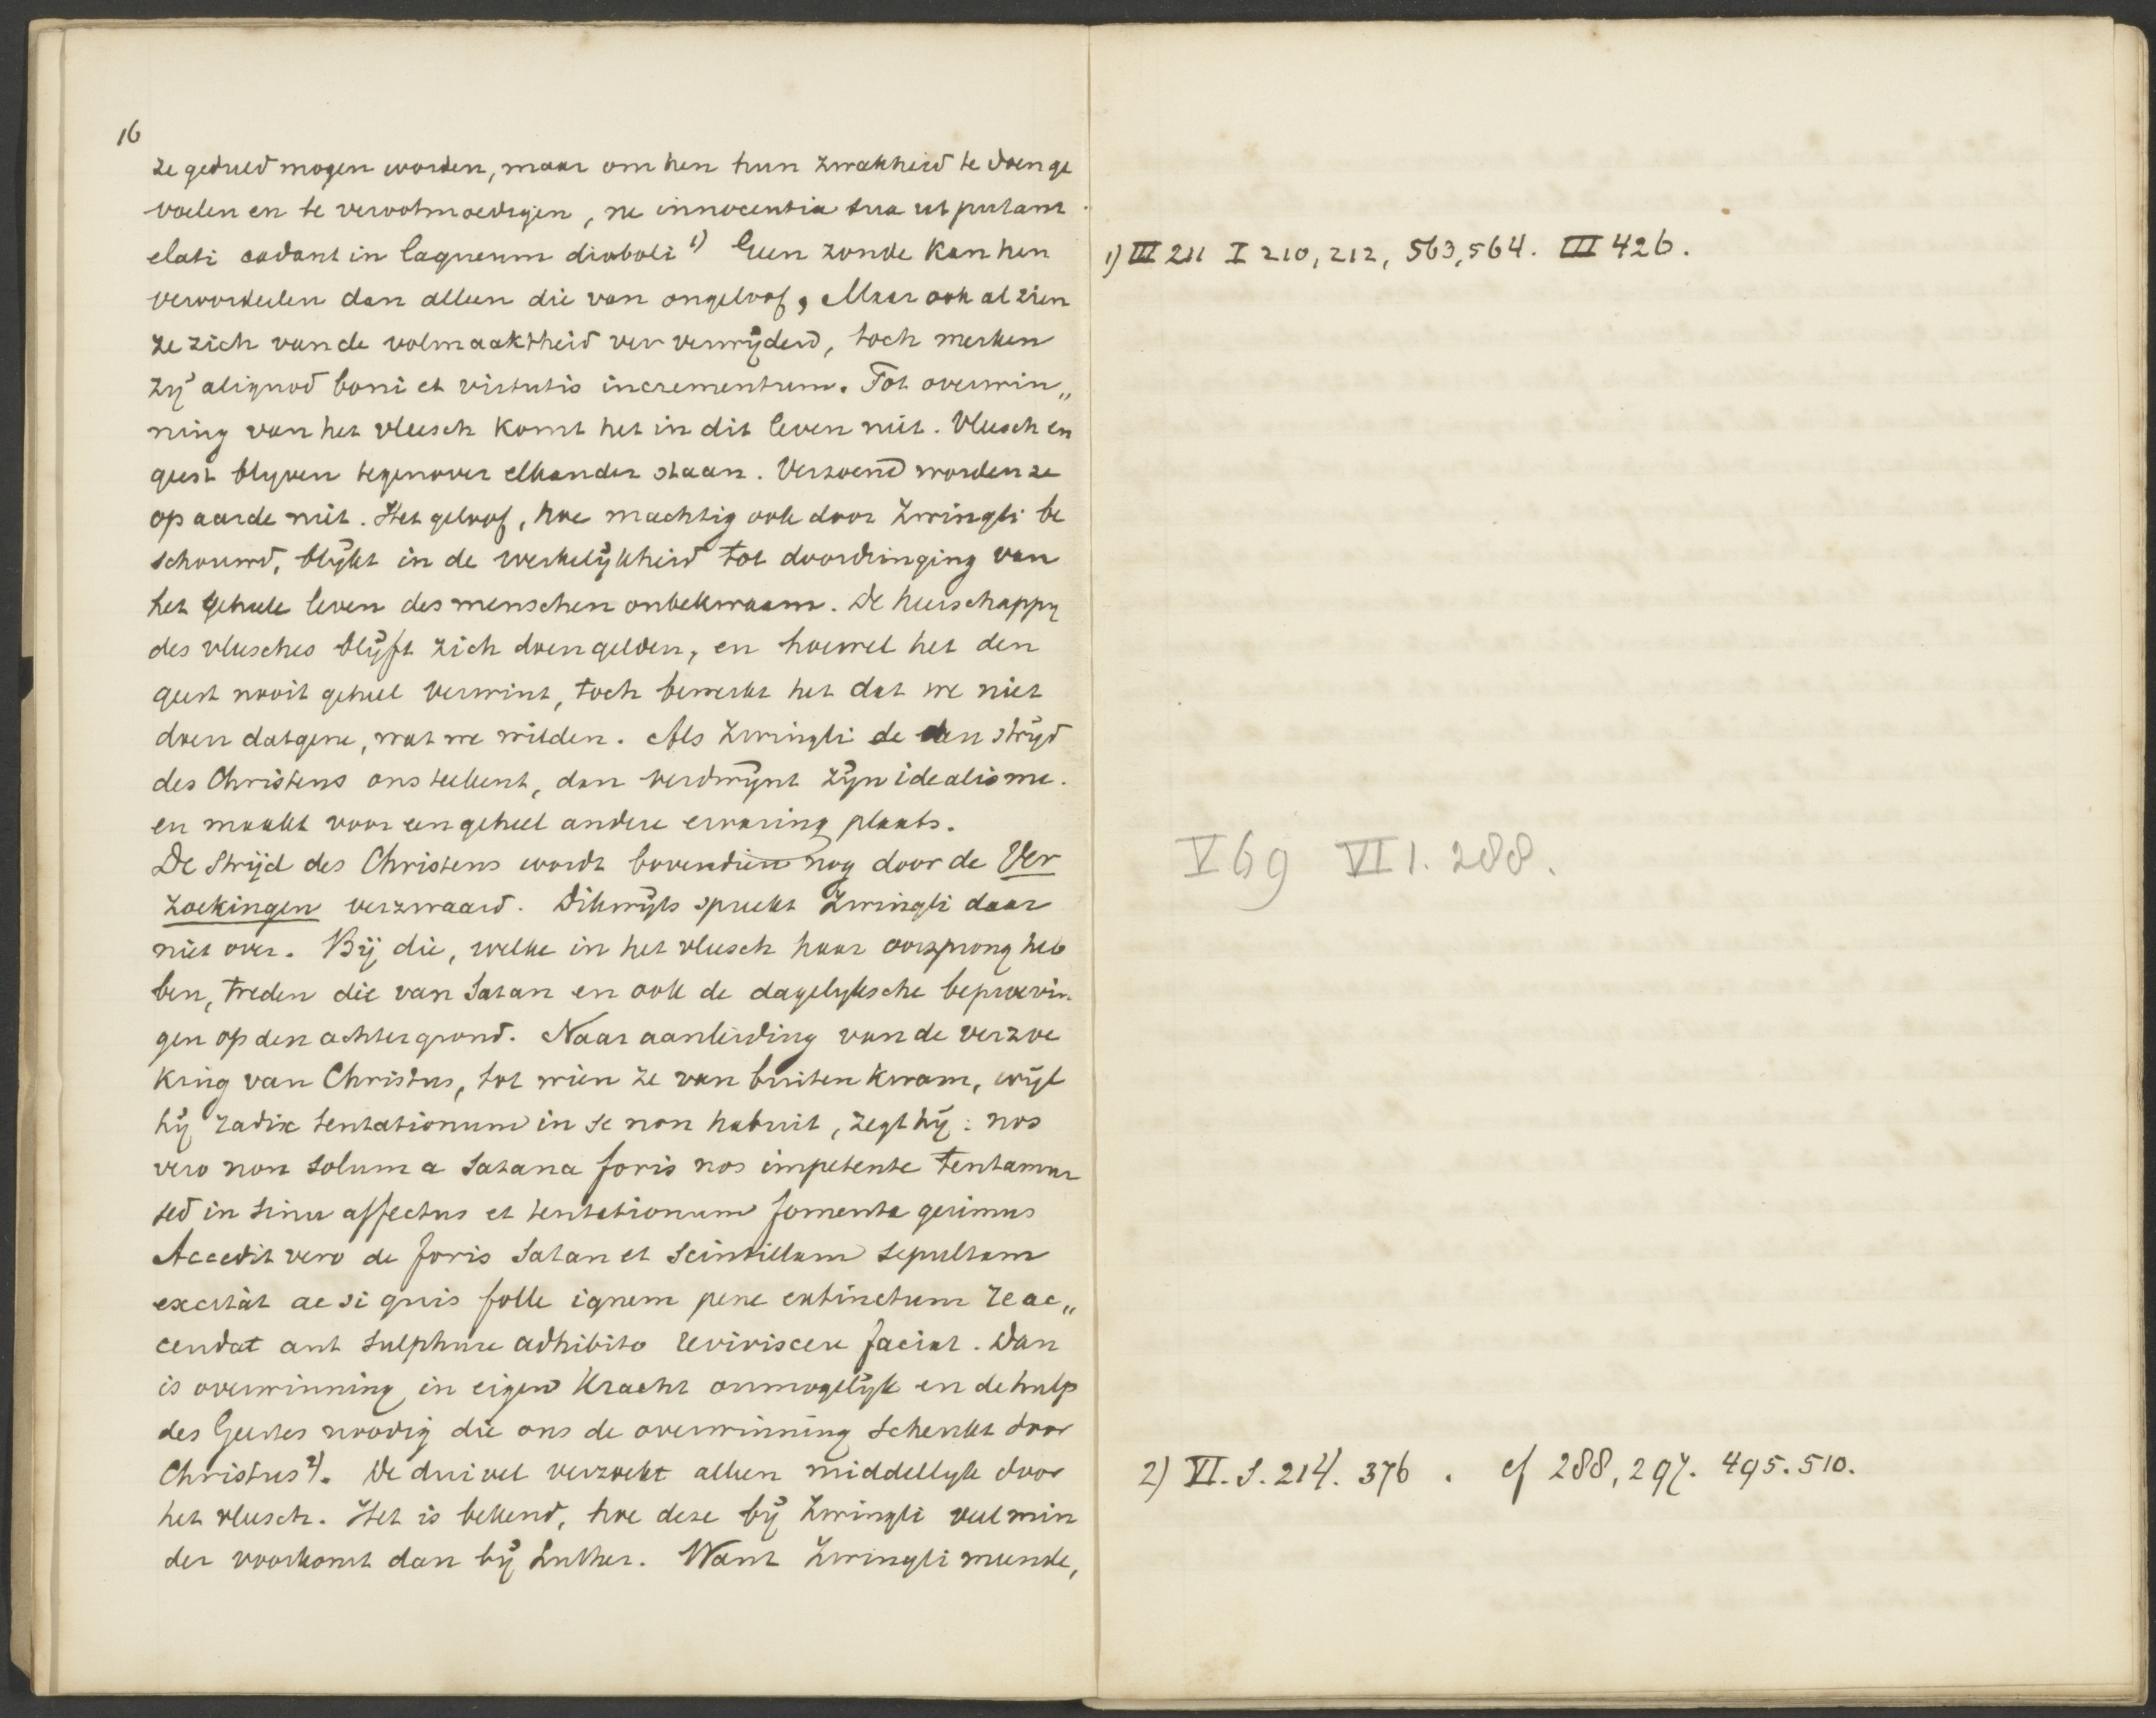 16
ze geduld mogen worden, maar om hen hun zwakheid te doen ge
voelen en te verootmoedigen, ne innocentia sua ut putant
elati cadant in laqueum diaboli 1) Geen zonde kan hen
veroordeelen dan alleen die van ongeloof, Maar ook al zien
ze zich van de volmaaktheid ver verwijderd, toch merken
zij aliquod boni et virtutis incrementum. Tot overwin„
ning van het vleesch komt het in dit leven niet. Vleesch en
geest blijven tegenover elkander staan. Verzoend worden ze
op aarde niet. Het geloof, hoe machtig ook door Zwingli be
schouwd, blijkt in de werkelijkheid tot doordringing van
het geheele leven des menschen onbekwaam. De heerschappij
des vleesches blijft zich doen gelden, en hoewel het den
geest nooit geheel verwint, toch bewerkt het dat we niet
doen datgene, wat we wilden. Als Zwingli de den strijd
des Christens ons teekent, dan verdwijnt zijn idealisme.
en maakt voor een geheel andere ervaring plaats.
De Strijd des Christens wordt bovendien nog door de Ver
zoekingen verzwaard. Dikwijls spreekt Zwingli daar
niet over. Bij die, welke in het vleesch haar oorsprong heb
ben, treden die van Satan en ook de dagelyksche beproevin
gen op den achtergrond. Naar aanleiding van de verzoe
king van Christus, tot wien ze van buiten kwam, wijl
hij radix tentationum in se non habuit, zegt hij: nos
vero non solum a Satana foris nos impetente tentamur
sed in sinu affectus et tentationum fomenta gerimus
Accedit vero de foris Satan et scintillam sepultam
excitat ac si quis folle ignem pene extinctum reac„
cendat aut sulphure adhibito reviviscere faciat. Dan
is overwinning in eigen kracht onmogelijk en de hulp
des Geestes noodig die ons de overwinning schenkt door
Christus 2). De duivel verzoekt alleen middellyk door
het vleesch. Het is bekend, hoe deze bij Zwingli veel min
der voorkomt dan bij Luther. Want Zwingli meende,
1) III 211 I 210, 212, 563, 564. III 426.
V 69 VI 1. 288.
2) VI. S. 214. 376 . cf 288, 297. 495. 510.